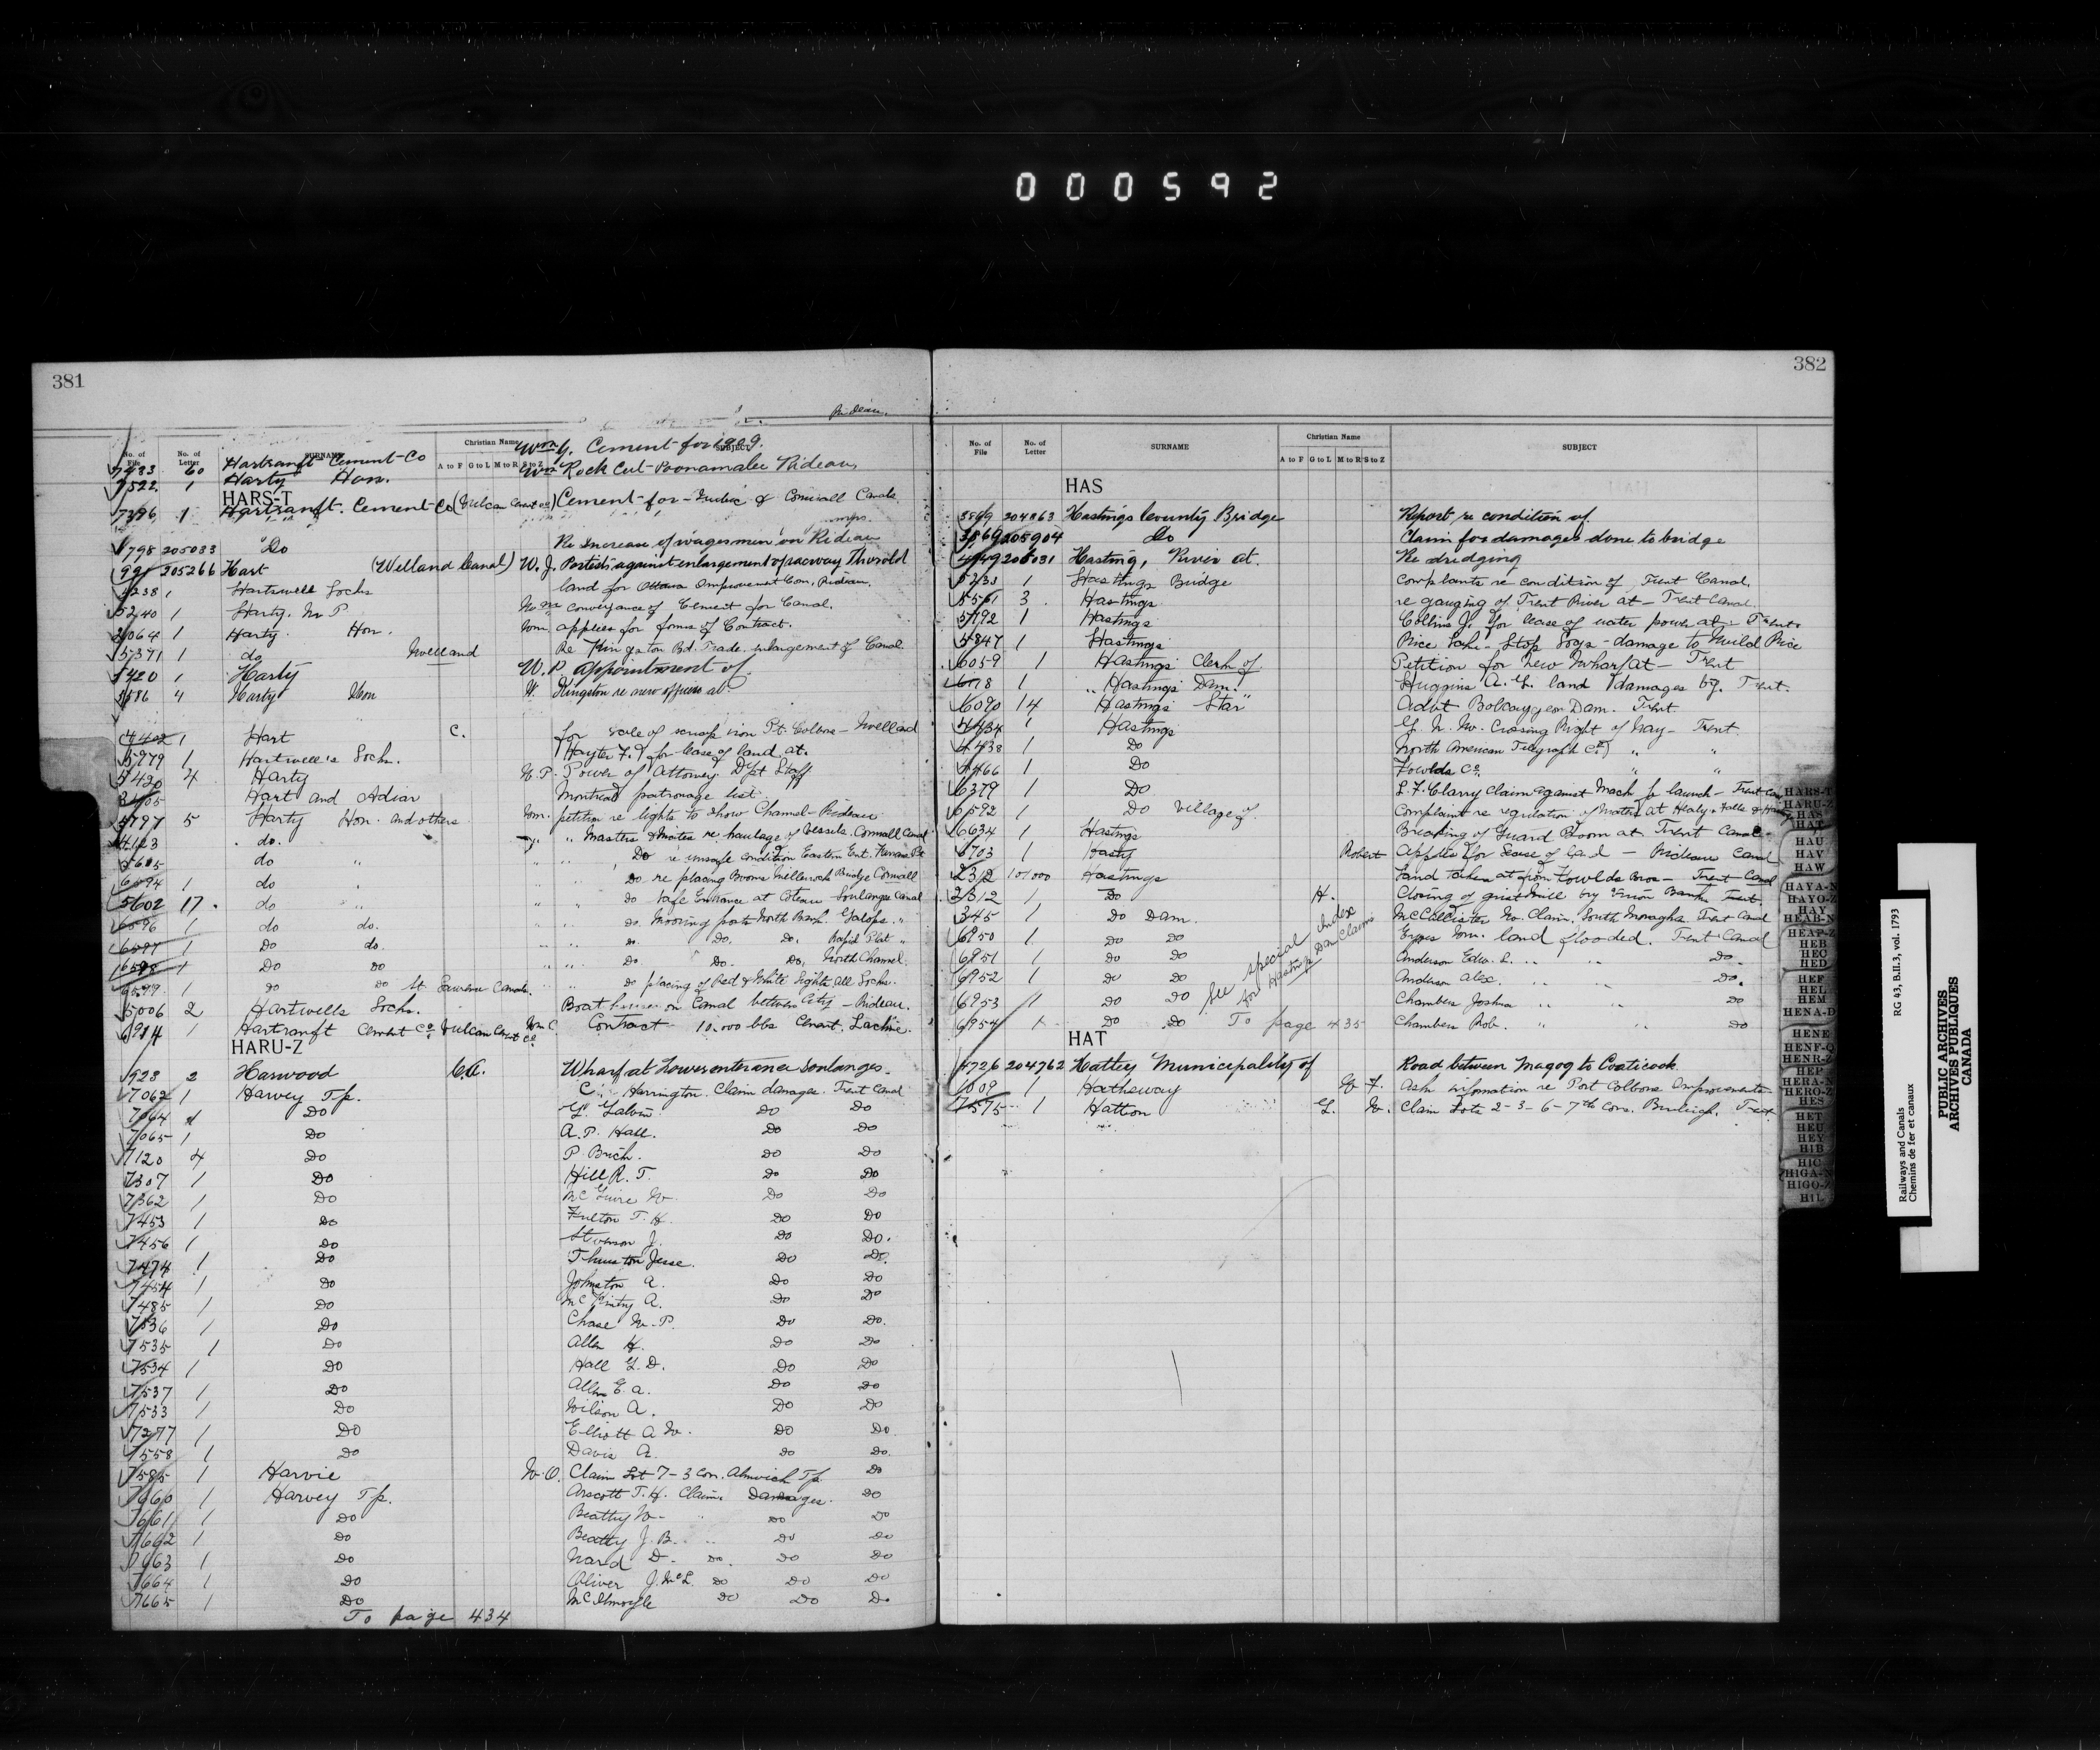 000592
381
Rideau.
No. of File No. of Letter SURNAME Christian Name A to F G to L M to R S to Z SUBJECT
7433 60 Hartranft Cement Co Wm G. Cement for 1909.
7522 1 Harty Hon. Wm Rock Cut - Poonamalee Rideau
HARS-T
7396 1 Hartranft. Cement Co (Vulcan Cement Co) Cement for Quebec & Cornwall Canals
1798 205033 Do Re Increase of wages men on Rideau
991 205266 Hart (Welland Canal) W. J. Protests against enlargement of raceway Thorold
4238 1 Hartswell Locks land for Ottawa Improvement Com. Rideau.
5240 1 Harty. M P Wm conveyance of Cement for Canal.
2064 1 Harty. Hon. Wm. applies for forms of Contract.
5371 1 do Welland Re Kingston Bd. Trade enlargement of Canal
5420 1 Harty W. P. appointment of
3586 4 Harty Hon W. Kingston re new offices at
4402 1 Hart C. for sale of scrap iron Pt. Colborne - Welland
5979 1 Hartwell's Locks. (Hayter F.) for lease of land at.
5420 4 Harty W. P. Power of Attorney. Dept Staff
3405 Hart and Adiar Montreal patronage list
4797 5 Harty Hon. and others Wm. petition re lights to show Channel - Rideau
4123 do. " " Masters & Mates re haulage of Vessels. Cornwall Canal
5605 do " " Do re unsafe condition Eastern Ent. Farrans Pt
6594 1 do " Do re placing Booms Mellerock Bridge Cornwall
5602 17 do " do safe Entrance at Coteau Soulanges Canal
6596 1 do do. do. Mooring posts North Bank. Galops "
6597 1 Do do. do. Do. Do. Rapid Plat "
6598 1 Do Do Do. Do. Do. North Channel.
6599 1 Do Do St Lawrence Canals. Do placing of Red & White Lights all Locks.
5006 2 Hartwells Locks. Boat house on Canal between City - Rideau.
6984 1 Hartranft Cement Co. Vulcan Cement Co Wm C. Contract 10,000 bbs Cement, Lachine.
HARU-Z
923 2 Harwood C.A. Wharf at Lower entrance Soulanges.
7062 1 Harvey Tp. C. Harrington. Claim damages Trent Canal
7064 1 Do G. Galvin Do Do
7065 1 Do A. P. Hall. Do Do
7120 4 Do P. Buch. Do Do
7307 1 Do Hill R. T. Do Do
7362 1 Do McGuire W. Do Do
7453 1 Do Fulton T. H. Do Do
7456 1 Do Stevenson J. Do Do.
7474 1 Do Thurston Jesse. Do Do.
7454 1 Do Johnston A. Do Do
7485 1 Do McKintry A. Do Do
7536 1 Do Chase W. P. Do Do.
7535 1 Do Allen H. Do Do
7534 1 Do Hall G. D. Do Do
7537 1 Do Allen E. A. Do Do
7533 1 Do Wilson A. Do Do
7277 1 Do Elliott A W. Do Do.
7558 1 Do Davis A. Do Do.
7585 1 Harvie W. O. Claim Lot 7 - 3 Con. Alnwich Tp. Do
7660 1 Harvey Tp. Arscott T. H. Claim. Damages. Do
7661 1 Do Beatty W. " Do Do
7662 1 Do Beatty J. B. " Do Do
7663 1 Do Ward D. Do. Do Do
7664 1 Do Oliver J. McL Do Do Do
7665 1 Do McIlmoyle Do Do Do
To page 434
382
No. of File No. of Letter SURNAME Christian Name A to F G to L M to R S to Z SUBJECT
HAS
3869 204863 Hastings County Bridge Report re condition of.
3869 205904 Do Claim for damages done to bridge
4449 205031 Hasting, River at. Re dredging
5233 1 Hastings Bridge complaints re condition of Trent Canal.
5561 3 Hastings re gauging of Trent River at - Trent Canal
5792 1 Hastings Collins J. for lease of water power at - Trent
4847 1 Hastings Rice Lake - Stop Logs - damage to Wild Rice
6059 1 Hastings Clerk of Petition for new Wharf at - Trent
6178 1 " Hastings Dam. Huggins A. G. land damages by. Trent.
6090 14 Hastings Star " Advt Bobcaygeon Dam. Trent
4434 1 Hastings G. N. W. Crossing Right of Way - Trent.
4438 1 Do North American Telegraph Co.) " "
4466 1 Do Fowlds Co. " "
6379 1 Do L. F. Clarry claim against Mach for launch - Trent Can
6592 1 Do Village of Complaint re regulation of water at Healy Falls & Hastings
6634 1 Hastings Breaking of Guard Boom at Trent Canal
6703 1 Hasty Robert Applies for lease of land - Rideau Canal
2312 101000 Hastings Land taken at from Fowlds Bros - Trent Canal
2312 1 Do H. Closing of grist mill by Union Bank Trent.
345 1 Do Dam. McCallister W. Claim, South Monaghan Trent Canal
6950 1 Do Do Eyres Wm. land flooded. Trent Canal
6951 1 Do Do Anderson Edw. L. " " Do.
6952 1 Do Do Anderson Alex. " " Do.
6953 1 Do Do Chambers Joshua " " Do
6954 1 Do Do To page 435 Chambers Rob. " " Do
See special Index for Hastings Dam Claims
HAT
4726 204762 Hatley Municipality of Road between Magog to Coaticook
1609 1 Hatheway G. F. Ask information re Port Colborne Improvements
7575 1 Hatton G. W. Claim Lots 2-3-6-7th Con. Burleigh. Trent.
HARS-T
HARU-Z
HAS
HAT
HAU
HAV
HAW
HAYA-N
HAYO-Z
HAY
HEAB-N
HEAP-Z
HEB
HEC
HED
HEF
HEL
HEM
HENA-D
HENE
HENF-Q
HENR-Z
HEP
HERA-N
HERO-Z
HES
HET
HEU
HEY
HIB
HIC
HIGA-N
HIGO-Z
HIL
Railways and Canals RG 43, B.II.3, vol. 1793
Chemins de fer et canaux
PUBLIC ARCHIVES
ARCHIVES PUBLIQUES
CANADA